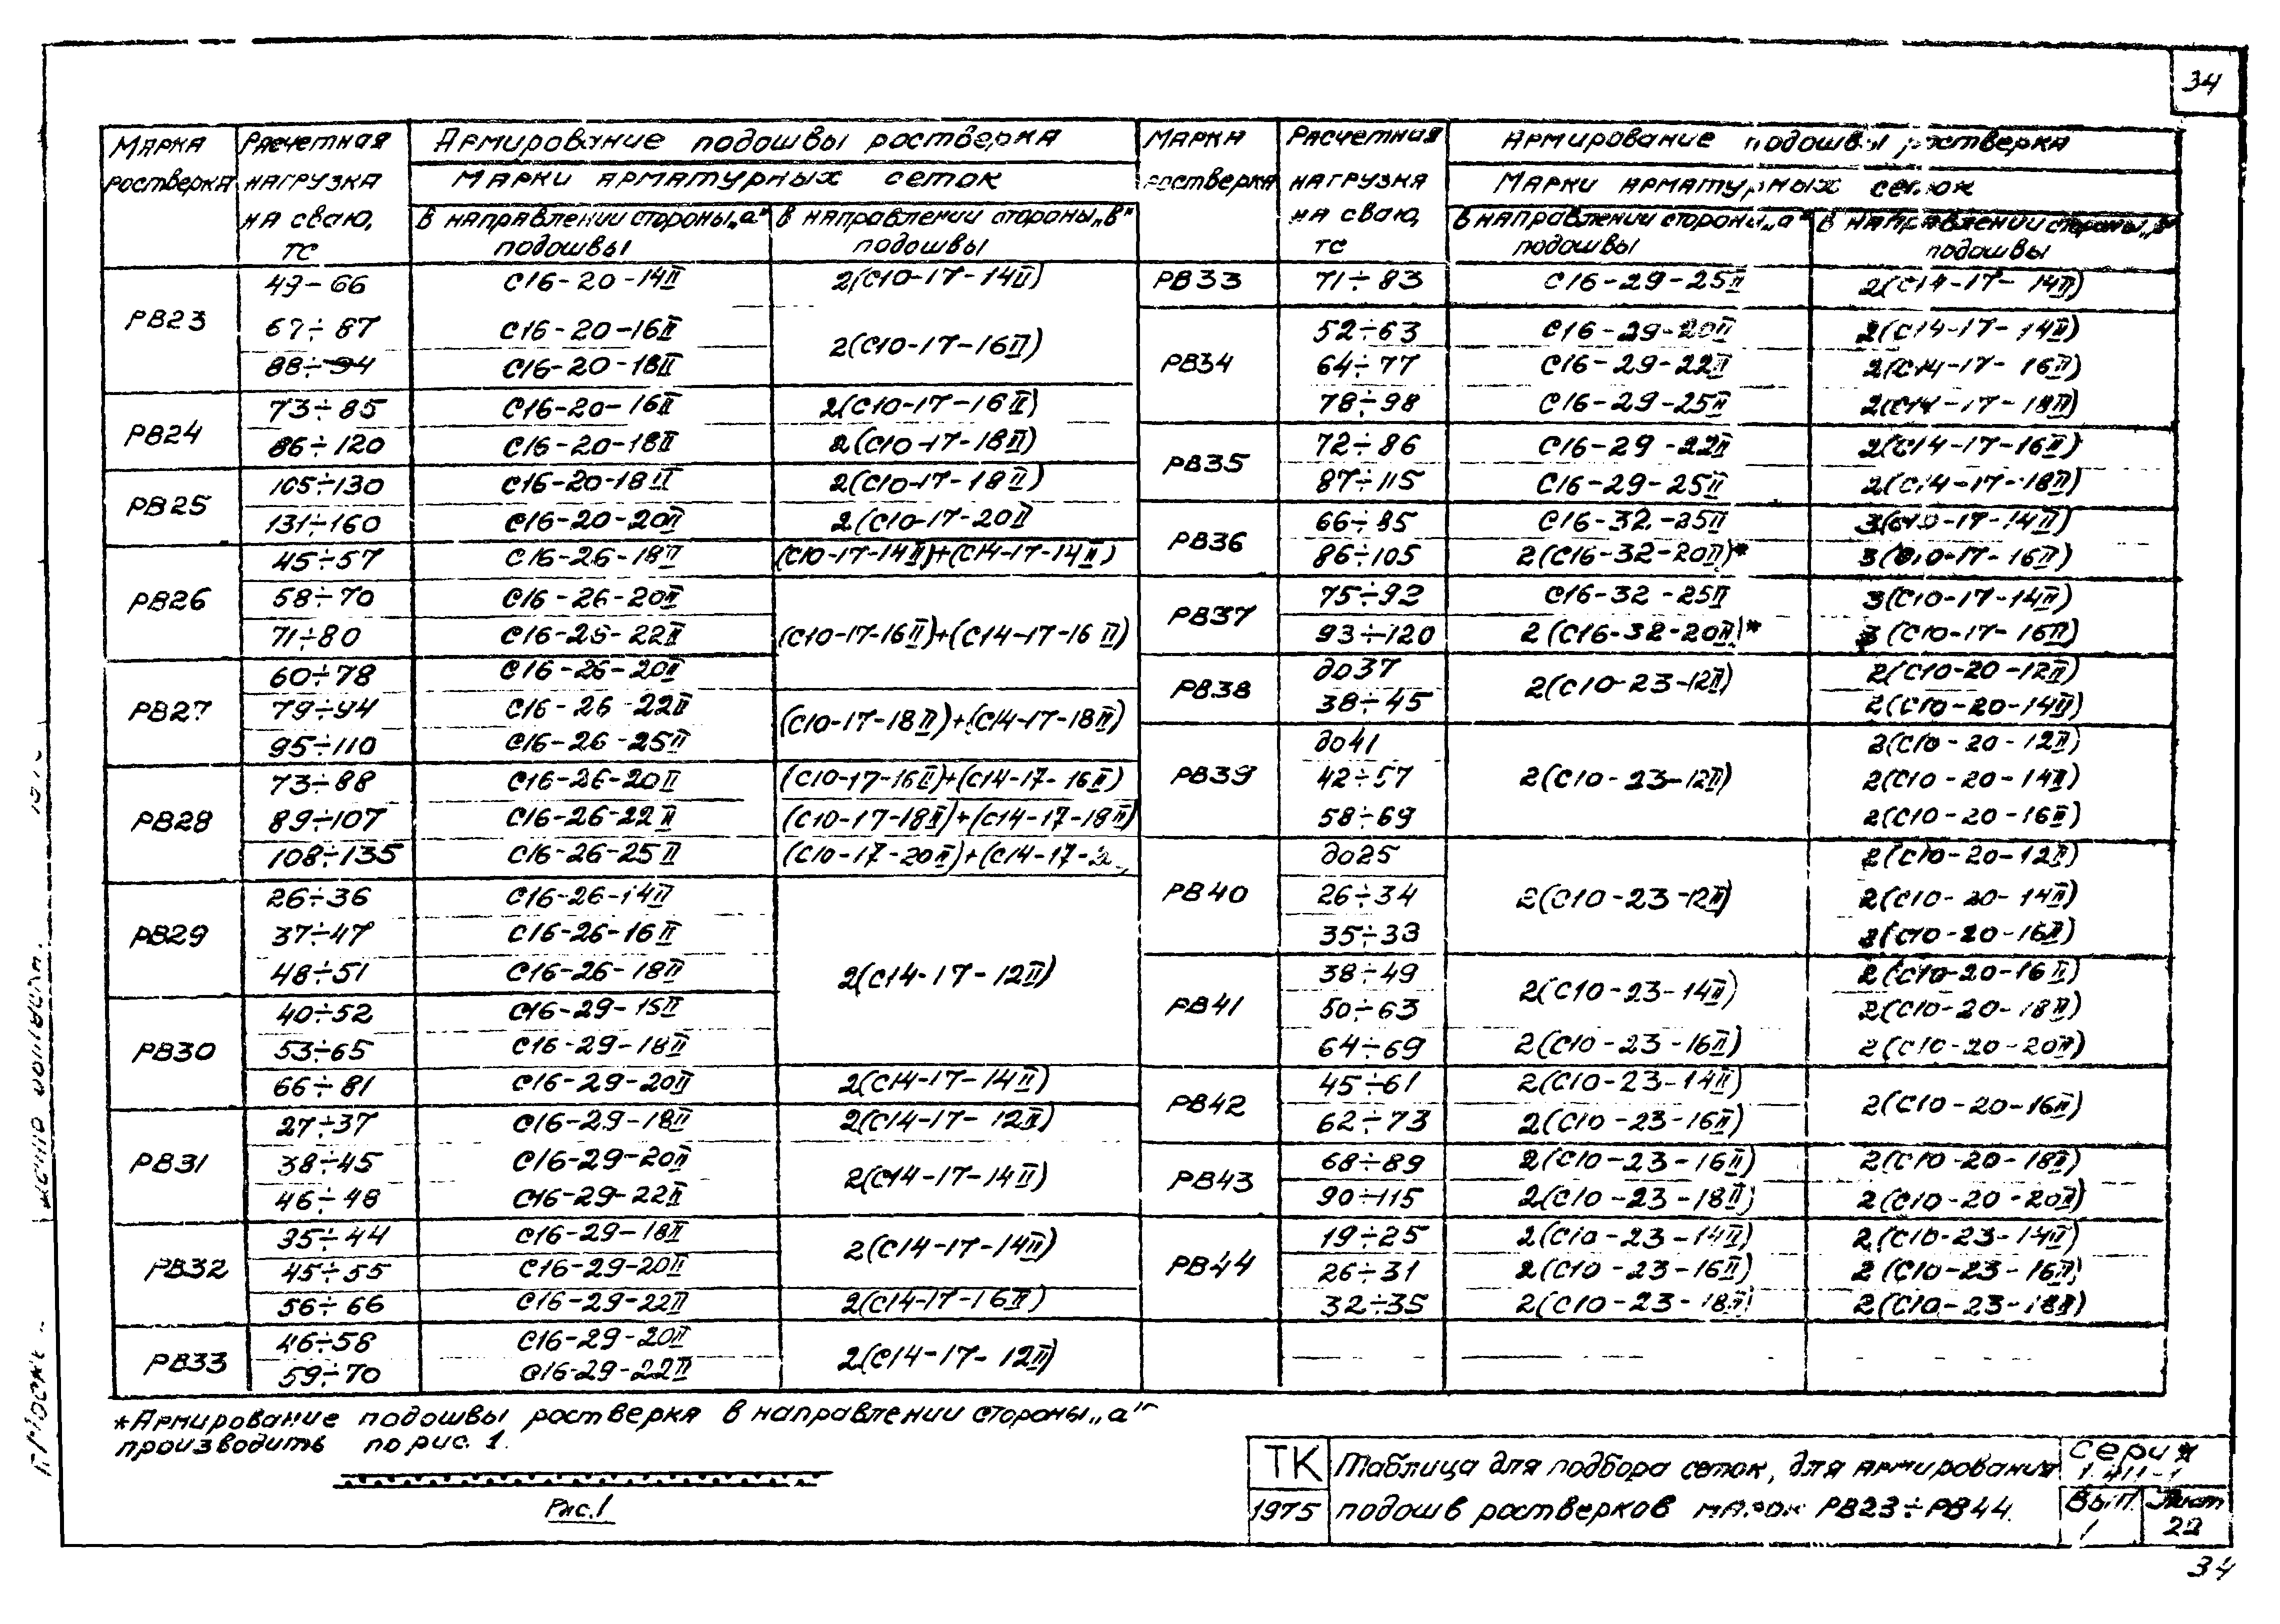 34
Марка ростверка | Расчетная нагрузка на сваю, тс | Армирование подошвы ростверка
Марки арматурных сеток
В направлении стороны „а" подошвы | В направлении стороны „в" подошвы
РВ23 | 49-66 | С16-20-14II | 2(С10-17-14II)
67÷87 | С16-20-16II | 2(С10-17-16II)
88÷94 | С16-20-18II
РВ24 | 73÷85 | С16-20-16II | 2(С10-17-16II)
86÷120 | С16-20-18II | 2(С10-17-18II)
РВ25 | 105÷130 | С16-20-18II | 2(С10-17-18II)
131÷160 | С16-20-20II | 2(С10-17-20II
РВ26 | 45÷57 | С16-26-18II | (С10-17-14II)+(С14-17-14II)
58÷70 | С16-26-20II | (С10-17-16II)+(С14-17-16II)
71÷80 | С16-26-22II
РВ27 | 60÷78 | С16-26-20II
79÷94 | С16-26-22II | (С10-17-18II)+(С14-17-18II)
95÷110 | С16-26-25II
РВ28 | 73÷88 | С16-26-20II | (С10-17-16II)+(С14-17-16II)
89÷107 | С16-26-22II | (С10-17-18II)+(С14-17-18II)
108÷135 | С16-26-25II | (С10-17-20II)+(С14-17-2
РВ29 | 26÷36 | С16-26-14II | 2(С14-17-12II)
37÷47 | С16-26-16II
48÷51 | С16-26-18II
РВ30 | 40÷52 | С16-29-16II
53÷65 | С16-29-18II
66÷81 | С16-29-20II | 2(С14-17-14II)
РВ31 | 27÷37 | С16-29-18II | 2(С14-17-12II)
38÷45 | С16-29-20II | 2(С14-17-14II)
46÷48 | С16-29-22II
РВ32 | 35÷44 | С16-29-18II | 2(С14-17-14II)
45÷55 | С16-29-20II
56÷66 | С16-29-22II | 2(С14-17-16II)
РВ33 | 46÷58 | С16-29-20II | 2(С14-17-12II)
59÷70 | С16-29-22II
Марка ростверка | Расчетная нагрузка на сваю, тс | Армирование подошвы ростверка
Марки арматурных сеток
В направлении стороны „а" подошвы | В направлении стороны „в" подошвы
РВ33 | 71÷83 | С16-29-25II | 2(С14-17-14II)
РВ34 | 52÷63 | С16-29-20II | 2(С14-17-14II)
64÷77 | С16-29-22II | 2(С14-17-16II)
78÷98 | С16-29-25II | 2(С14-17-18II)
РВ35 | 72÷86 | С16-29-22II | 2(С14-17-16II)
87÷115 | С16-29-25II | 2(С14-17-18II)
РВ36 | 66÷85 | С16-32-25II | 3(С10-17-14II)
86÷105 | 2(С16-32-20II)* | 3(С10-17-16II)
РВ37 | 75÷92 | С16-32-25II | 3(С10-17-14II)
93÷120 | 2(С16-32-20II)* | 3(С10-17-16II)
РВ38 | до37 | 2(С10-23-12II) | 2(С10-20-12II)
38÷45 | 2(С10-20-14II)
РВ39 | до41 | 2(С10-23-12II) | 2(С10-20-12II)
42÷57 | 2(С10-20-14II)
58÷69 | 2(С10-20-16II)
РВ40 | до25 | 2(С10-23-12II) | 2(С10-20-12II)
26÷34 | 2(С10-20-14II)
35÷33 | 2(С10-20-16II)
РВ41 | 38÷49 | 2(С10-23-14II) | 2(С10-20-16II)
50÷63 | 2(С10-20-18II)
64÷69 | 2(С10-23-16II) | 2(С10-20-20II)
РВ42 | 45÷61 | 2(С10-23-14II) | 2(С10-20-16II)
62÷73 | 2(С10-23-16II)
РВ43 | 68÷89 | 2(С10-23-16II) | 2(С10-20-18II)
90÷115 | 2(С10-23-18II) | 2(С10-20-20II)
РВ44 | 19÷25 | 2(С10-23-14II) | 2(С10-23-14II)
26÷31 | 2(С10-23-16II) | 2(С10-23-16II)
32÷35 | 2(С10-23-18II) | 2(С10-23-18II)
*Армирование подошвы ростверка в направлении стороны „а"
производить по рис. 1.
Рис.1
ТК
1975
Таблица для подбора сеток, для армирования
подошв ростверков марок РВ23÷РВ44.
Серия
1.411-1
Вып. 1
Лист 22
34